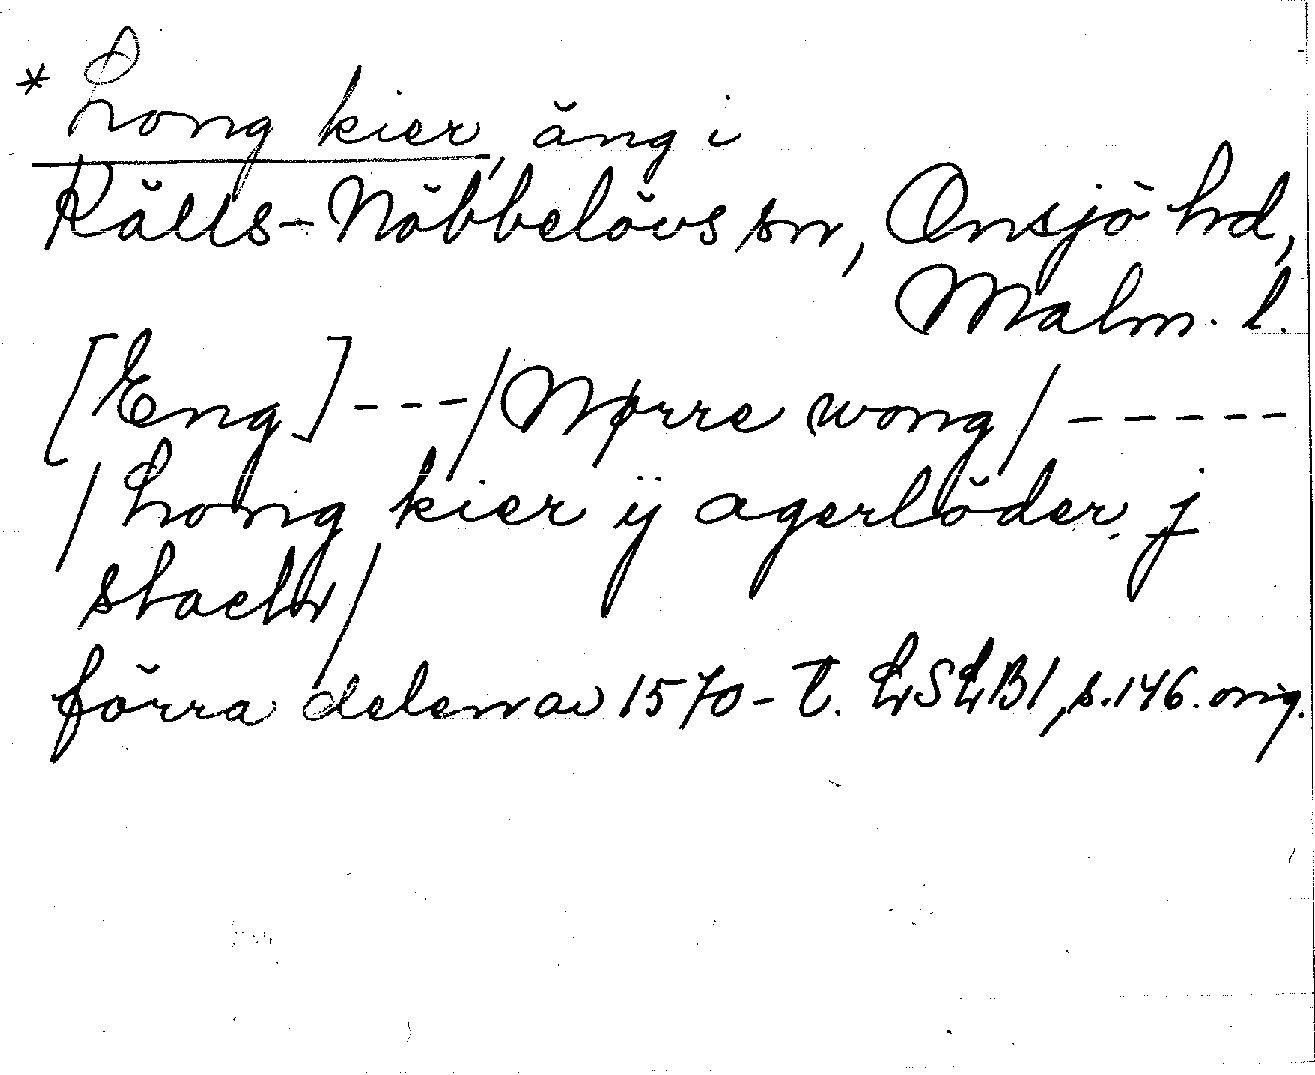 * Long kier, äng i
Källs-Nöbbelövs sn, Onsjö hd,
Malm. l.
[Eng] --- / Nørre wong / -----
/ Long kier ij agerlöder j
stæchr /
förra delen av 1570-t. LSLB1, s. 146. orig.